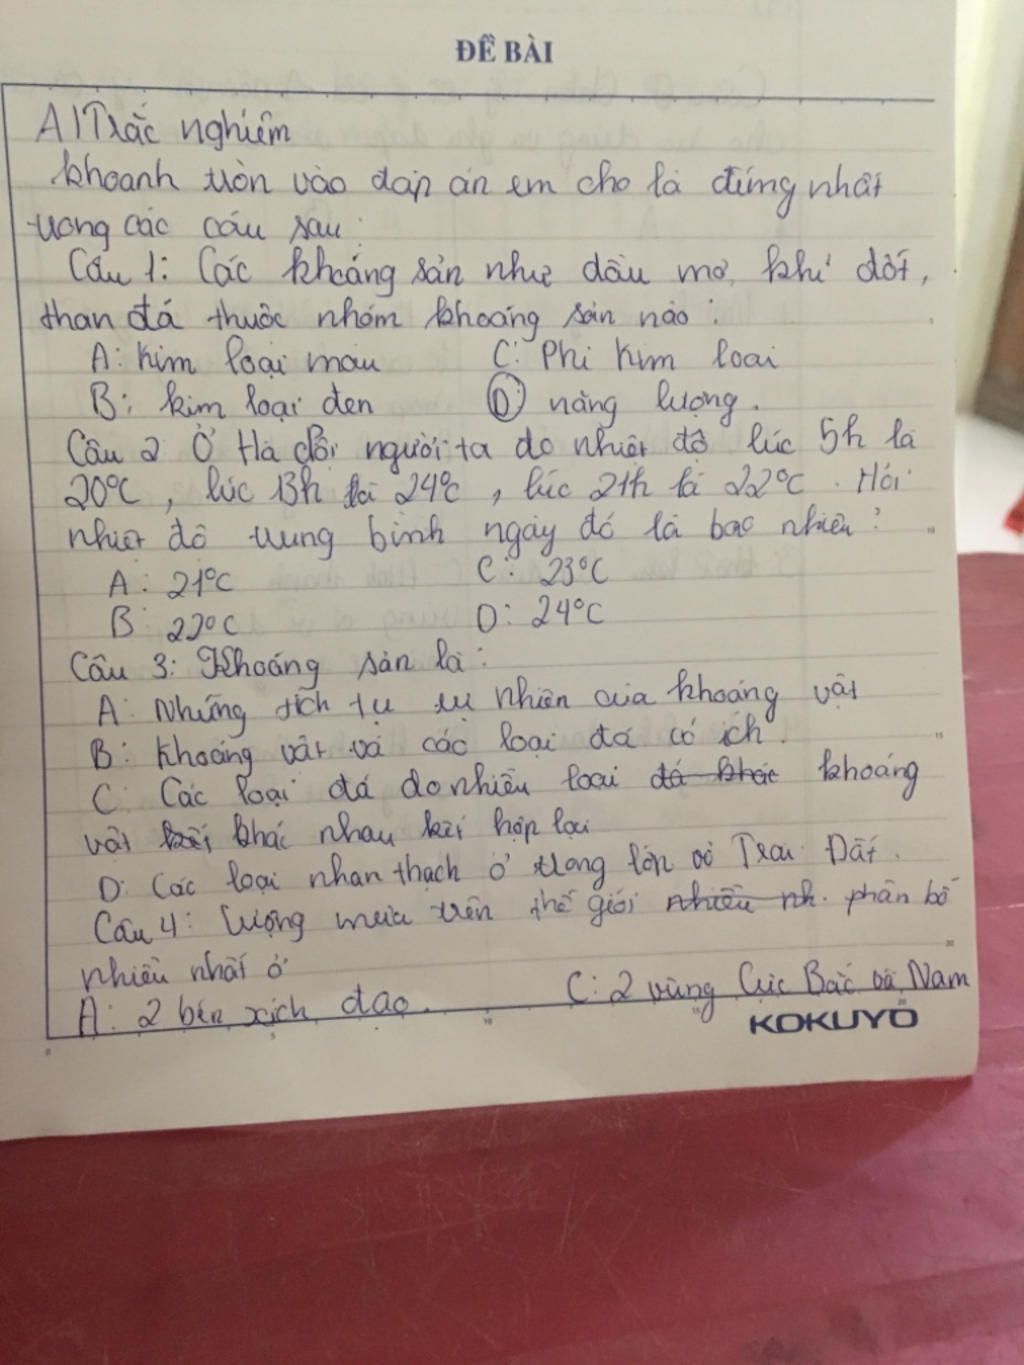 ĐỀ BÀI
A/Trắc nghiệm
khoanh tròn vào đáp án em cho là đúng nhất
trong các câu sau:
Câu 1: Các khoáng sản như dầu mỏ, khí đốt,
than đá thuộc nhóm khoáng sản nào:
A: Kim loại màu C: Phi kim loại
B: kim loại đen D năng lượng.
Câu 2 Ở Hà Nội người ta đo nhiệt độ lúc 5h là
20°C, lúc 13h là 24°C, lúc 21h là 22°C. Hỏi
nhiệt độ trung bình ngày đó là bao nhiêu?
A: 21°C C: 23°C
B: 22°C D: 24°C
Câu 3: Khoáng sản là:
A: Những tích tụ tự nhiên của khoáng vật
B: Khoáng vật và các loại đá có ích.
C: Các loại đá do nhiều loại đá khác khoáng
vật kết khác nhau kết hợp lại
D: Các loại nham thạch ở trong lớp vỏ Trái Đất.
Câu 4: Lượng mưa trên thế giới nhiều nh. phân bố
nhiều nhất ở
A: 2 bên xích đạo. C: 2 vùng Cực Bắc và Nam
KOKUYO